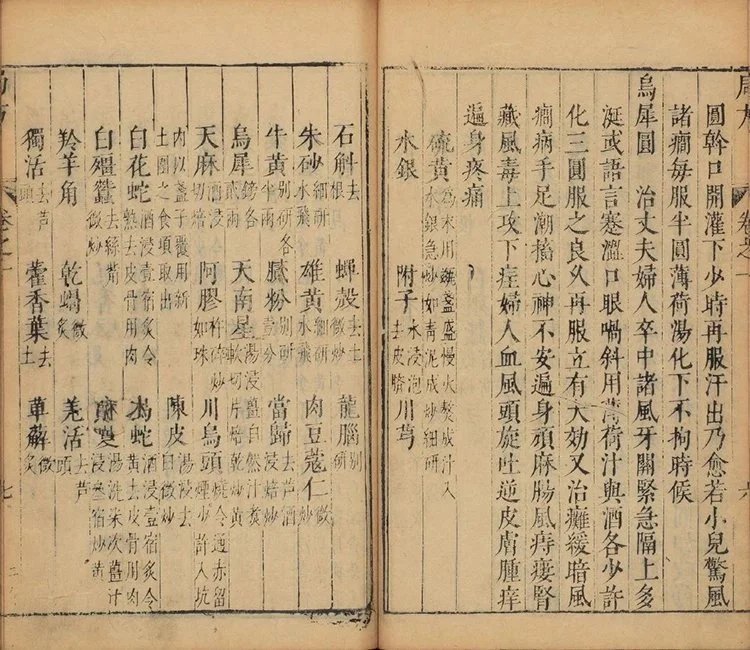 局方 卷之一 六
圓幹口開灌下少時再服汗出乃愈若小兒驚風
諸癎每服半圓薄荷湯化下不拘時候
烏犀圓 治丈夫婦人卒中諸風牙關緊急隔上多
涎或語言蹇澁口眼喎斜用薄荷汁與酒各少許
化三圓服之良久再服立有大効又治癱緩暗風
癎病手足潮搐心神不安遍身頑麻腸風痔瘻腎
藏風毒上攻下疰婦人血風頭旋吐逆皮膚腫痒
遍身疼痛
硫黃為末用瓷盞盛慢火熬成汁入水銀急炒如靑泥成砂細研
水銀 附子水浸泡去皮臍 川芎
石斛去根 蟬殼去土微炒 龍腦別研
朱砂細研水飛 雄黃細研水飛 肉豆蔻仁微炒
牛黃別研各半兩 膩粉別研壹分 當歸去蘆酒浸焙炒
烏犀鎊各貳兩 天南星湯浸軟切片焙乾炒黃薑自然汁炙 川烏頭燒令通赤留煙少許入坑
內以盞子覆用新土圍之食頃取出
天麻酒浸切焙 阿膠杵碎炒如珠 陳皮湯浸去白微炒
白花蛇酒浸壹宿炙令熟去皮骨用肉 烏蛇酒浸壹宿炙令黃去皮骨用肉
白殭蠶去絲嘴微炒 湯洗柒次薑汁浸叁宿炒黃
羚羊角 乾蝎微炙 羌活去蘆頭
獨活去蘆頭 藿香葉去土 萆薢微炙
局方 卷之一 七